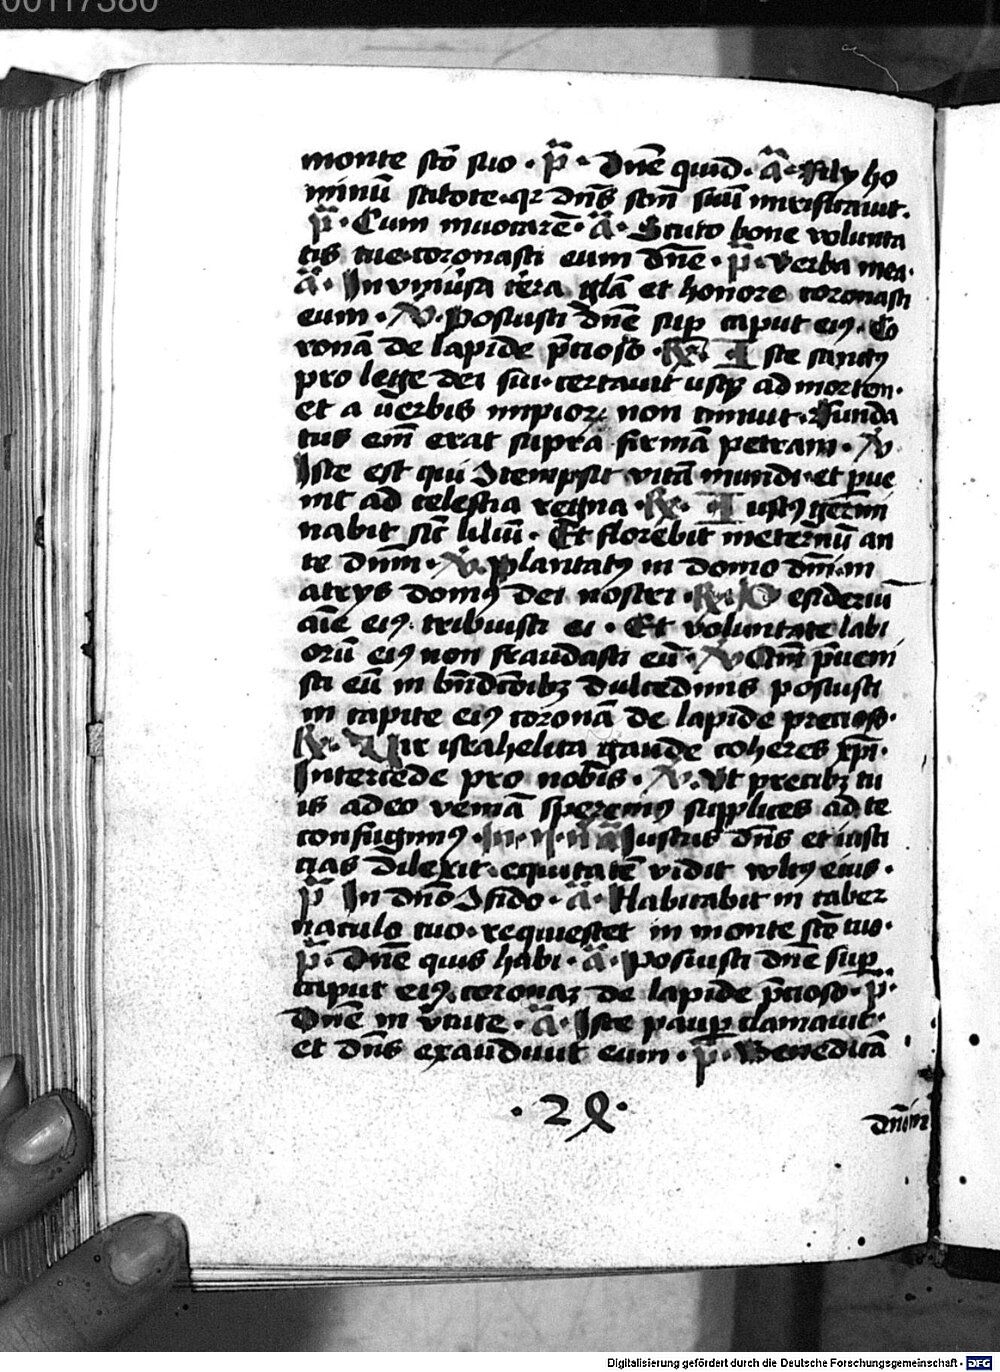 00117380
monte scō suo · p̄ · Dnē quid · ā · Filij ho
minū scitote qr dn̄s scm̄ suū mirificauit.
p̄ · Cum inuocarē · ā · Scuto bone volunta
tis tue coronasti eum dn̄e · p̄ · Verba mea ·
ā · In vniūsa terra glā et honore coronasti
eum · V · Posuisti dn̄e sup caput eiꝰ · Co
ronā de lapide p̄cioso · R · Iste sanctꝰ
pro lege dei sui certauit usqꝫ ad mortem ·
et a verbis impioꝝ non timuit · Funda
tus em̄ erat supra firmā petram · V
Iste est qui ꝯtempsit vitā mundi et ꝑue
nit ad celestia regna · R · Iustꝰ germi
nabit sic̄ liliū · Et florebit ineternū an
te dnm̄ · V · plantatꝰ in domo dn̄i in
atrijs domꝰ dei nostri · R · Desideriū
aīe eiꝰ tribuisti ei · Et voluntate labi
orū eiꝰ non fraudasti eū · V Qm̄ p̄ueni
sti eū in bn̄dc̄oibꝫ dulcedinis posuisti
in capite eiꝰ coronā de lapide precioso ·
R · Vir israhelita gaude coheres xp̄i ·
Intercede pro nobis · V · Ut precibꝫ tu
is adeo veniā speremꝰ supplices ad te
confugimꝰ · In · ij · nā Iustus dn̄s et iusti
cias dilexit equitatē vidit vultꝰ eius ·
p̄ In dn̄o ꝯfido · ā · Habitabit in taber
naculo tuo requiescet in monte scō tuo ·
p̄ · Dn̄e quis habi · ā · Posuisti dn̄e sup
caput eiꝰ coronaꝫ de lapide p̄cioso · p̄ ·
Dn̄e in v̄tute · ā · Iste pauꝑ clamauit ·
et dn̄s exaudiuit eum · p̄ · Benedicā
dn̄m in
Digitalisierung gefördert durch die Deutsche Forschungsgemeinschaft - DFG